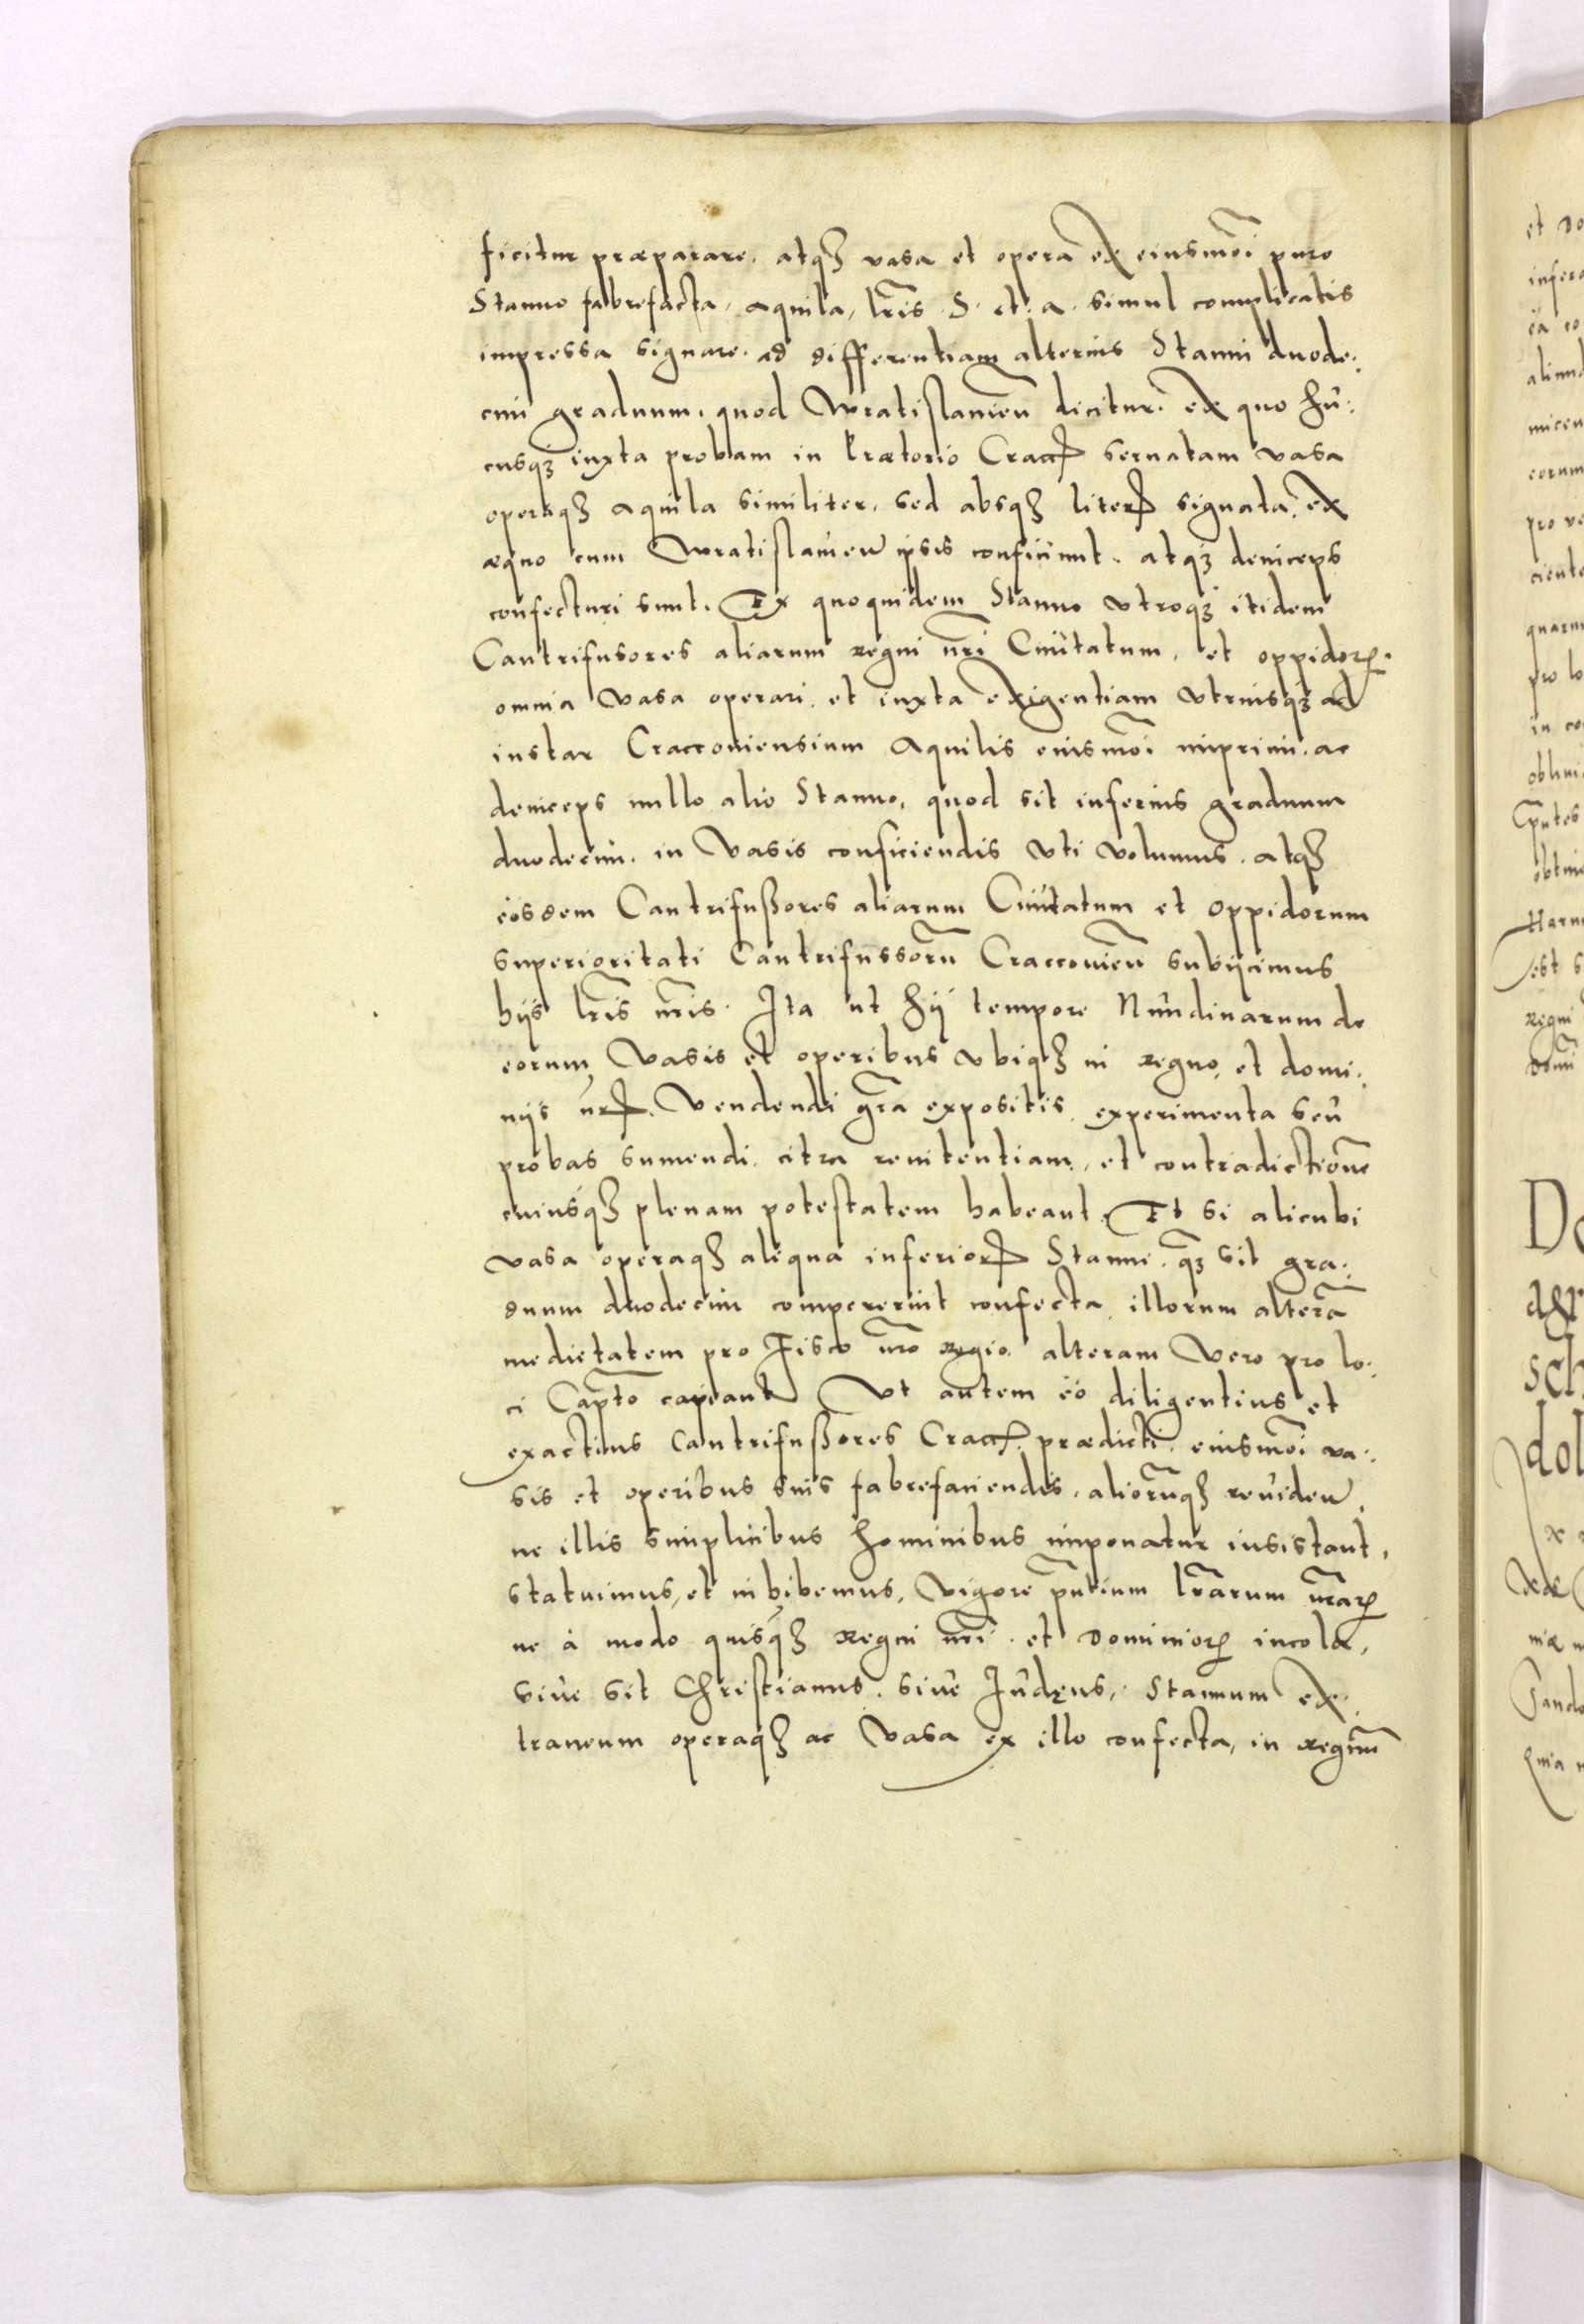 ficitur præparare, atqȝ vasa et opera ex eiusmõi puro
Stanno fabrefacta, aquila, lr̃is S. et. a. simul complicatis
impressa signare. ad differentiam alterius Stanni duode:
cim graduum, quod Wratislauieñ dicitur. ex quo hu:
cusqȝ iuxta probam in Prætorio Cracꝭ seruatam vasa
operaqȝ aquila similiter, sed absqȝ literꝭ signata, ex
æquo cum Wratislauieñ ipsis conficiunt. atqȝ deinceps
confecturi sunt. Ex quoquidem Stanno vtroqȝ itidem
Cantrifusores aliarum regni nr̃i Ciuitatum, et oppidoꝝ.
omnia vasa operari, et iuxta exigentiam vtriusqȝ ad
instar Craccouiensium Aquilis eiusmõi imprimi, ac
deinceps nullo alio Stanno, quod sit inferius graduum
duodecim, in vasis conficiendis vti volumus. atqȝ
eosdem Cantrifußores aliarum Ciuitatum et oppidorum
superioritati Cantrifussorũ Craccouieñ subijcimus
hijs lr̃is nr̃is. Ita ut hij tempore Nundinarum de
eorum vasis et operibus vbiqȝ in regno, et domi:
nijs nr̃ꝭ. vendendi gr̃a expositis, experimenta seu
probas sumendi, citra renitentiam, et contradictionẽ
cuiusqȝ plenam potestatem habeant. Et si alicubi
vasa operaqȝ aliqua inferiorꝭ Stanni, qȝ sit gra:
duum duodecim compererint confecta, illorum alterã
medietatem pro Fisco nr̃o regio, alteram vero pro lo:
ci Capt̃o capiant. Vt autem eo diligentius et
exactius Cantrifußores Cracꝭ. prædicti, eiusmõi va:
sis et operibus suis fabrefaciendis, aliorũqȝ reuideñ,
ne illis simplicibus hominibus imponatur insistant,
statuimus, et inhibemus, vigore p̃ntium lr̃arum nr̃aꝝ
ne à modo quisqȝ regni nr̃i. et dominioꝝ incola,
siue sit Christianus, siue Iudęus, Stannum ex:
traneum operaqȝ ac vasa ex illo confecta, in regnũ